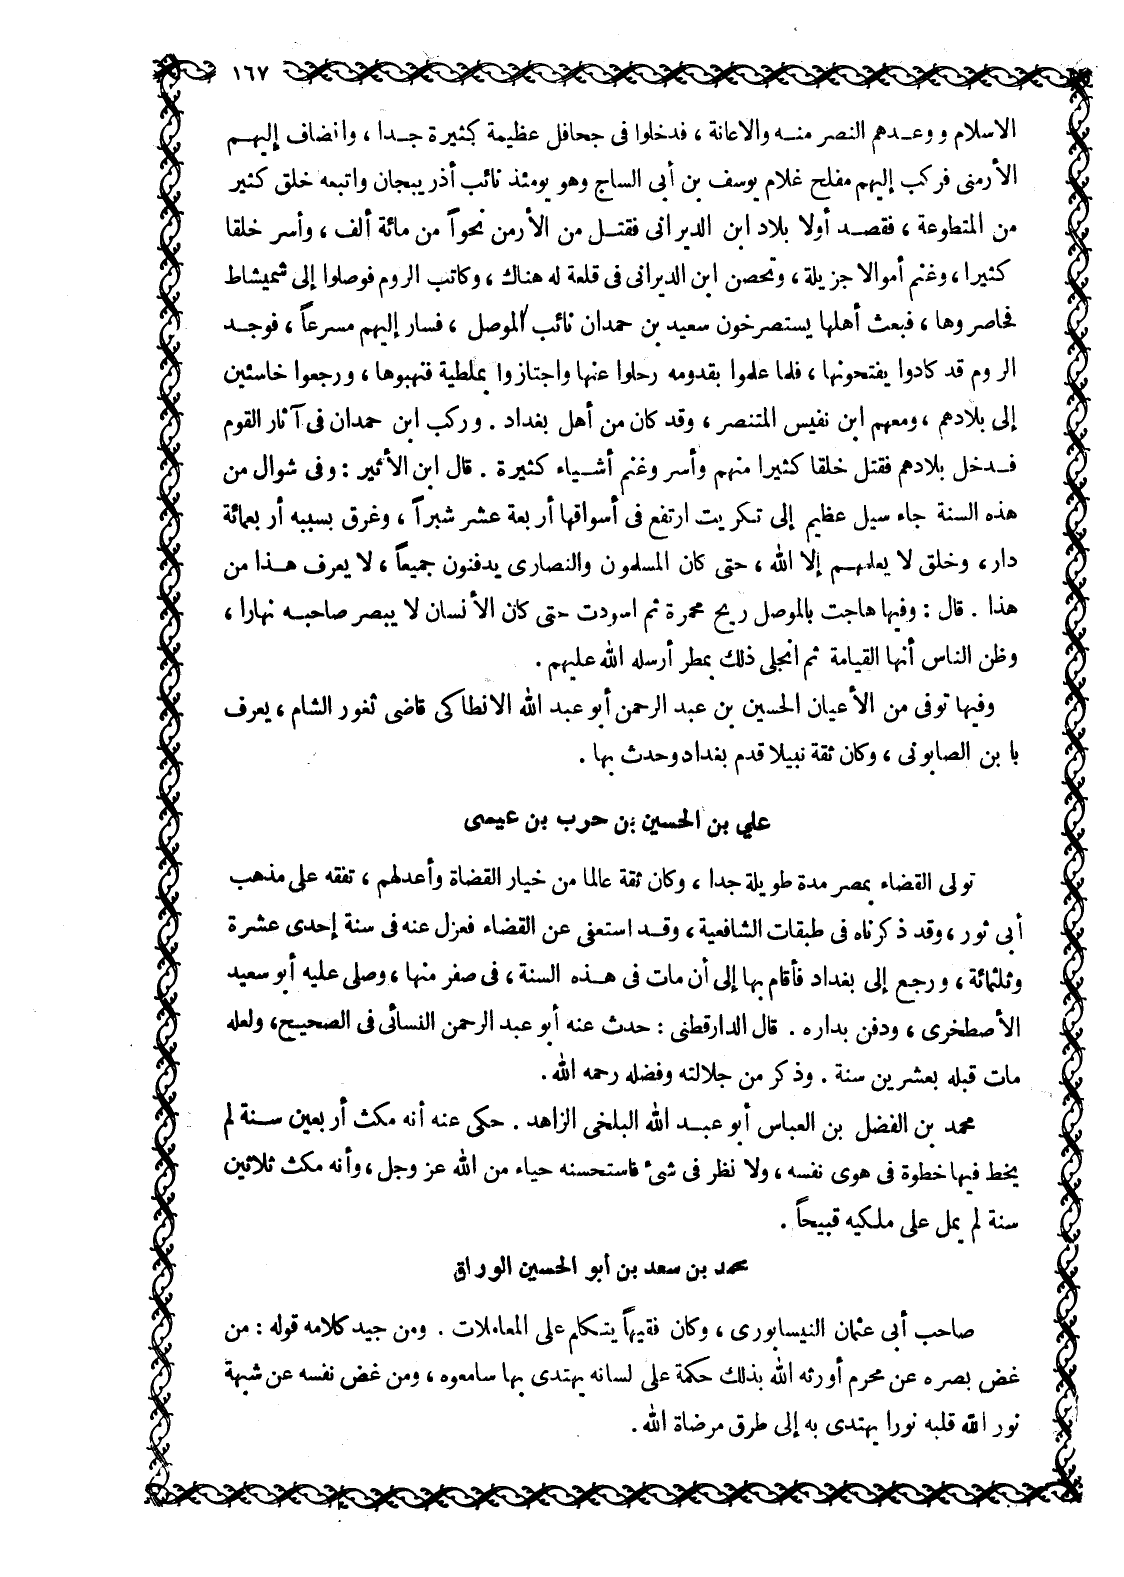 ١٦٧
الاسلام ووعدهم النصر منه والاعانة ، فدخلوا فى جحافل عظيمة كثيرة جدا ، وانضاف إليهم
الأرمنى فركب إليهم مفلح غلام يوسف بن أبى الساج وهو يومئذ نائب أذر بيجان واتبعه خلق كثير
من المتطوعة ، فقصد أولا بلاد ابن الديرانى فقتل من الأرمن نحواً من مائة ألف ، وأسر خلقا
كثيرا ، وغنم أموالا جزيلة ، وتحصن ابن الديرانى فى قلعة له هناك ، وكاتب الروم فوصلوا إلى شميشاط
فحاصروها ، فبعث أهلها يستصرخون سعيد بن حمدان نائب الموصل ، فسار إليهم مسرعاً ، فوجد
الروم قد كادوا يفتحونها ، فلما علموا بقدومه رحلوا عنها واجتازوا بملطية فنهبوها ، ورجعوا خاسئين
إلى بلادهم ، ومعهم ابن نفيس المتنصر ، وقد كان من أهل بغداد . وركب ابن حمدان فى آثار القوم
فدخل بلادهم فقتل خلقا كثيرا منهم وأسر وغنم أشياء كثيرة . قال ابن الأثير : وفى شوال من
هذه السنة جاء سيل عظيم إلى تكريت ارتفع فى أسواقها أربعة عشر شبراً ، وغرق بسببه أربعمائة
دار ، وخلق لا يعلمهم إلا الله ، حتى كان المسلمون والنصارى يدفنون جميعاً ، لا يعرف هذا من
هذا . قال : وفيها هاجت بالموصل ريح محمرة ثم اسودت حتى كان الأنسان لا يبصر صاحبه نهارا ،
وظن الناس أنها القيامة ثم انجلى ذلك بمطر أرسله الله عليهم .
وفيها توفى من الأعيان الحسين بن عبد الرحمن أبو عبد الله الانطاكى قاضى ثغور الشام ، يعرف
بابن الصابونى ، وكان ثقة نبيلا قدم بغداد وحدث بها .
علي بن الحسين بن حرب بن عيسى
تولى القضاء بمصر مدة طويلة جدا ، وكان ثقة عالما من خيار القضاة وأعدلهم ، تفقه على مذهب
أبى ثور ، وقد ذكرناه فى طبقات الشافعية ، وقد استعفى عن القضاء فعزل عنه فى سنة إحدى عشرة
وثلثمائة ، ورجع إلى بغداد فأقام بها إلى أن مات فى هذه السنة ، فى صفر منها ، وصلى عليه أبو سعيد
الأصطخرى ، ودفن بداره . قال الدارقطنى : حدث عنه أبو عبد الرحمن النسائى فى الصحيح ، ولعله
مات قبله بعشرين سنة . وذكر من جلالته وفضله رحمه الله .
محمد بن الفضل بن العباس أبو عبد الله البلخى الزاهد . حكى عنه أنه مكث أربعين سنة لم
يخط فيها خطوة فى هوى نفسه ، ولا نظر فى شئ فاستحسنه حياء من الله عز وجل ، وأنه مكث ثلاثين
سنة لم يمل على ملكيه قبيحاً .
محمد بن سعد بن أبو الحسين الوراق
صاحب أبى عثمان النيسابورى ، وكان فقيهاً يتكلم على المعاملات . ومن جيد كلامه قوله : من
غض بصره عن محرم أورثه الله بذلك حكمة على لسانه يهتدى بها سامعوه ، ومن غض نفسه عن شبهة
نور الله قلبه نورا يهتدى به إلى طرق مرضاة الله .